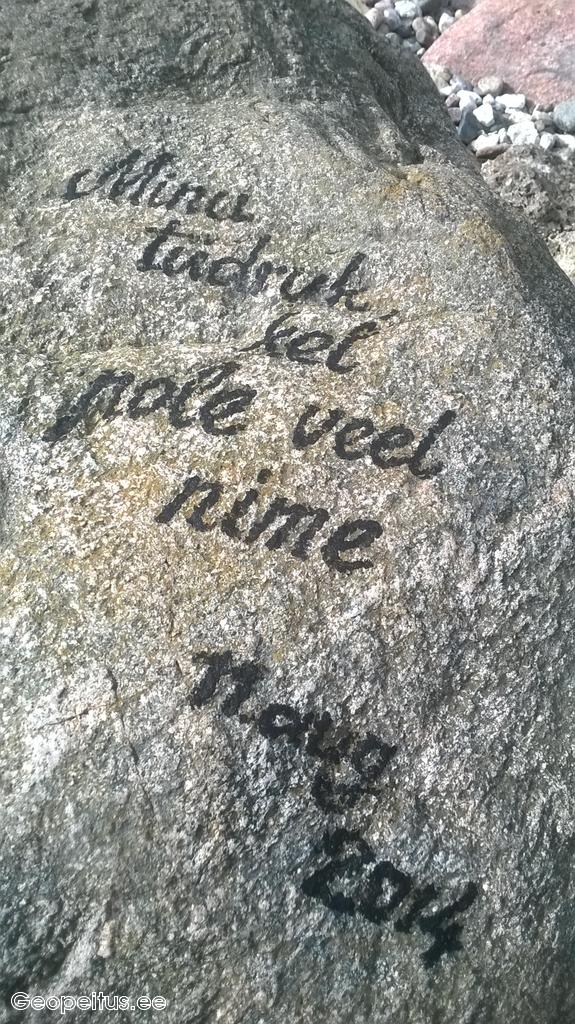 Mina
tüdruk,
kel
pole veel
nime
11. aug
2014
Geopeitus.ee